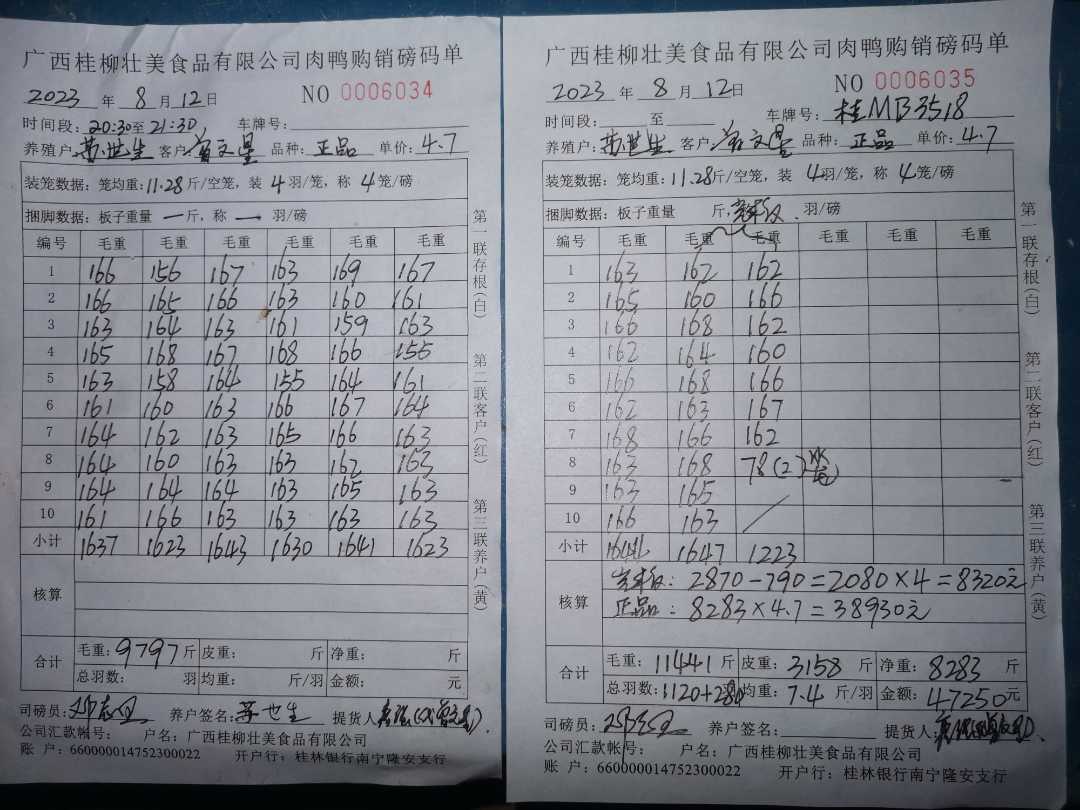 广西桂柳壮美食品有限公司肉鸭购销磅码单
2023 年 8 月 12 日 NO 0006034
时间段: 20:30 至 21:30 车牌号:
养殖户: 苏世生 客户: 文星 品种: 正品 单价: 4.7
装笼数据: 笼均重: 11.28 斤/空笼, 装 4 羽/笼, 称 4 笼/磅
捆脚数据: 板子重量 一 斤, 称 一 羽/磅
编号 毛重 毛重 毛重 毛重 毛重 毛重
1 166 156 167 163 169 167
2 166 165 166 163 160 161
3 163 164 163 161 159 163
4 165 168 167 168 166 155
5 163 158 164 155 164 161
6 161 160 163 166 167 164
7 164 162 163 165 166 163
8 164 160 163 163 162 163
9 164 164 164 163 165 163
10 161 166 163 163 163 163
小计 1637 1623 1643 1630 1641 1623
核算
合计 毛重: 9797 斤 皮重: 斤 净重: 斤
总羽数: 羽 均重: 斤/羽 金额: 元
司磅员: 养户签名: 苏世生 提货人:
公司汇款帐号: 户名: 广西桂柳壮美食品有限公司
账 户: 660000014752300022 开户行: 桂林银行南宁隆安支行
第一联存根(白) 第二联客户(红) 第三联养户(黄)
广西桂柳壮美食品有限公司肉鸭购销磅码单
2023 年 8 月 12 日 NO 0006035
时间段: 至 车牌号: 桂MB3518
养殖户: 苏世生 客户: 文星 品种: 正品 单价: 4.7
装笼数据: 笼均重: 11.28 斤/空笼, 装 4 羽/笼, 称 4 笼/磅
捆脚数据: 板子重量 斤, 羽/磅
编号 毛重 毛重 毛重 毛重 毛重 毛重
1 163 162 162
2 165 160 166
3 166 168 162
4 162 164 160
5 166 168 166
6 162 163 167
7 168 166 162
8 163 168 78(2)
9 163 165
10 166 163
小计 1644 1647 1223
核算 : 2870-790=2080×4=8320元
正品: 8283×4.7=38930元
合计 毛重: 11441 斤 皮重: 3158 斤 净重: 8283 斤
总羽数: 1120+280 均重: 7.4 斤/羽 金额: 47250 元
司磅员: 养户签名: 提货人:
公司汇款帐号: 户名: 广西桂柳壮美食品有限公司
账 户: 660000014752300022 开户行: 桂林银行南宁隆安支行
第一联存根(白) 第二联客户(红) 第三联养户(黄)